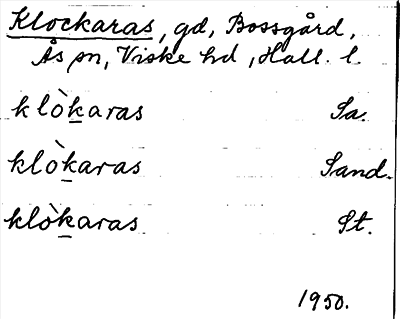 Klockaras, gd, Bossgård,
Ås sn, Viske hd, Hall. l.
klò̱karas Sa.
klò̱karas Sand.
klò̱karas St.
1950.